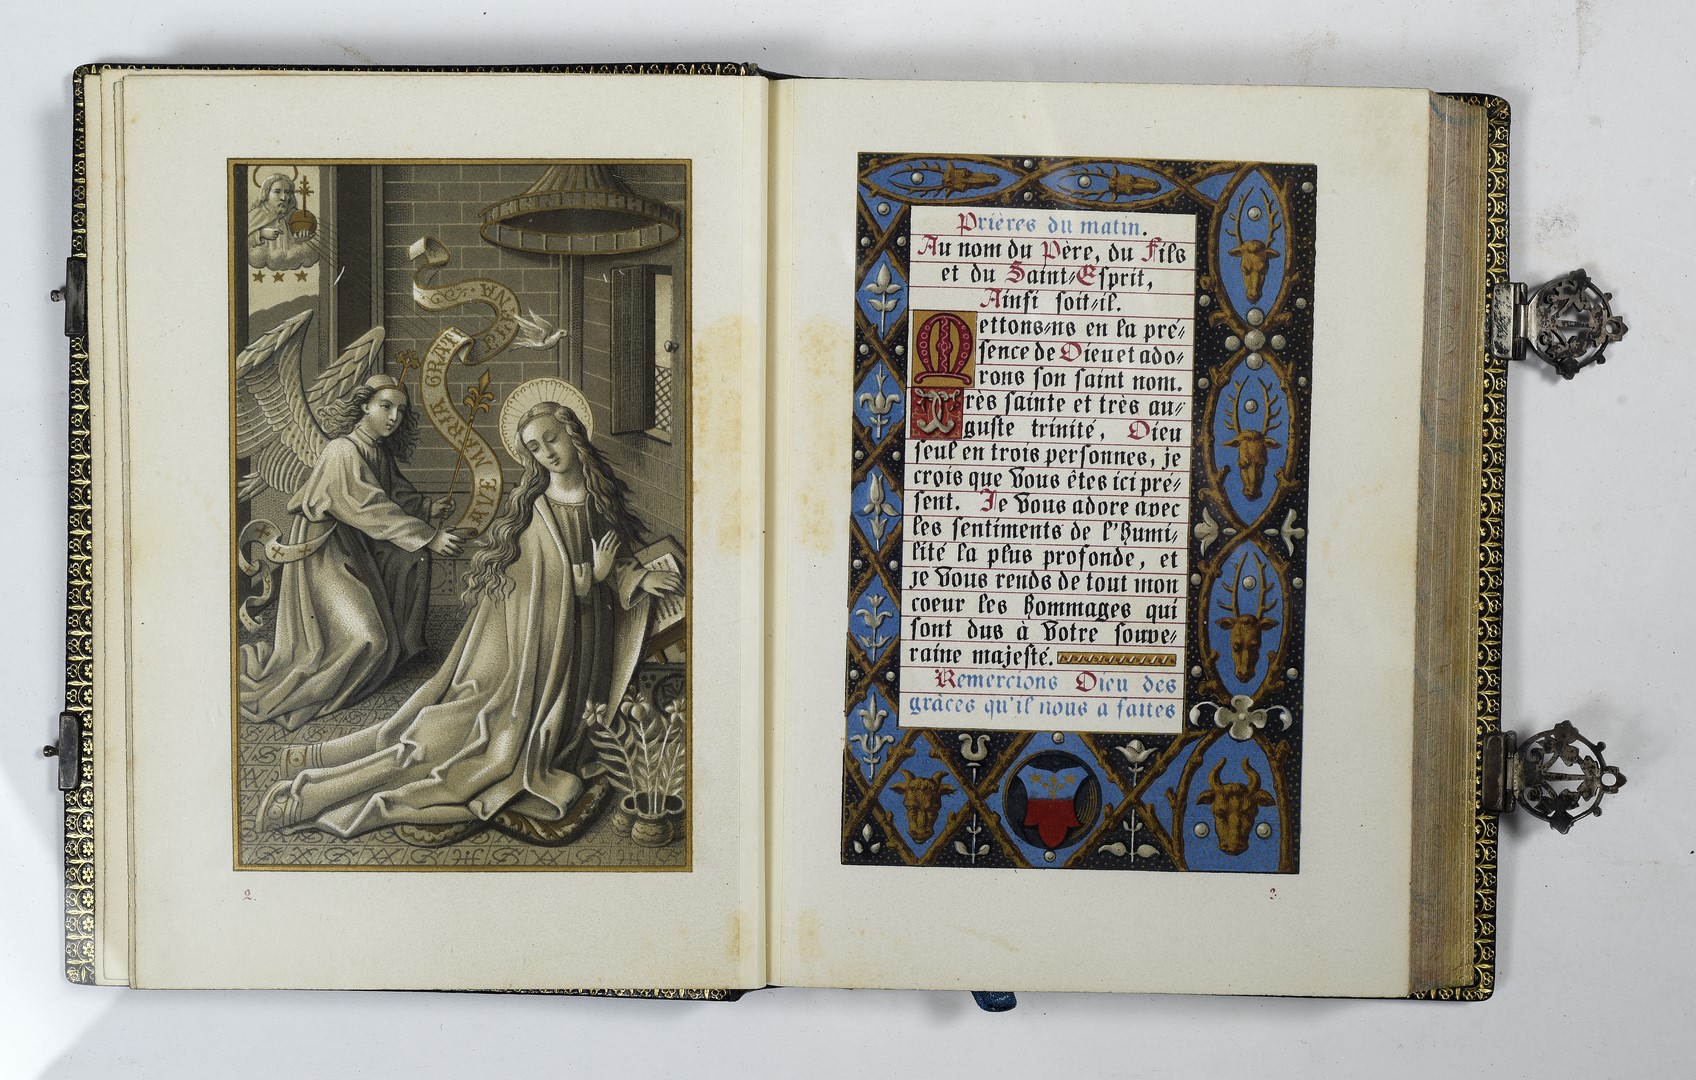 AVE MARIA GRATIA PLENA
2.
Prières du matin.
Au nom du Père, du Fils
et du Saint-Esprit,
Ainsi soit-il.
Mettons-ns en la pré-
sence de Dieu et ado-
rons son saint nom.
Très sainte et très au-
guste trinité, Dieu
seul en trois personnes, je
crois que Vous êtes ici pré-
sent. Je Vous adore avec
les sentiments de l'humi-
lité la plus profonde, et
je Vous rends de tout mon
coeur les hommages qui
sont dus à Votre souve-
raine majesté.
Remercions Dieu des
grâces qu'il nous a faites